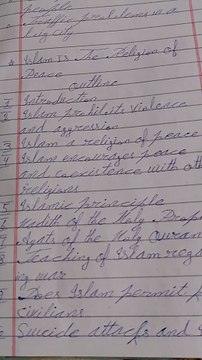 Traffic problems in a
big city
Islam is The Religion of
Peace
outline
1 Introduction
2 Islam prohibits violence
and aggression
3 Islam a religion of peace
4 Islam encourages peace
and coexistence with oth
religions
5 Islamic principle
6 Hadith of the Holy Prop
7 Ayats of the Holy Quran
8 Teaching of Islam rega
ng war
9 Does Islam permit
civilians
Suicide attacks and